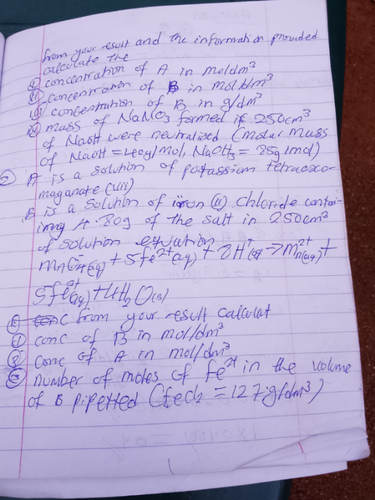 from your result and the information provided
calculate the
(i) concentration of A in moldm³
(ii) concentration of B in mol/dm³
(iii) concentration of B in g/dm³
mass of NaNO₃ formed if 250cm³
of NaOH were neutralized (molar mass
of NaOH = 40g/mol, NaOH₃ = 85g/mol)
A is a solution of potassium tetraoxo-
maganate (VII)
B is a solution of iron (II) chloride contai-
ining 4.80g of the salt in 250cm³
of solution equation
MnO₄⁻(aq) + 5fe²⁺(aq) + 8H⁺(aq) → Mn²⁺(aq) +
5fe³⁺(aq) + 4H₂O(s)
from your result calculat
conc of B in mol/dm³
conc of A in mol/dm³
Number of moles of fe²⁺ in the volume
of B pipetted (fecl₂ = 127g/dm³)